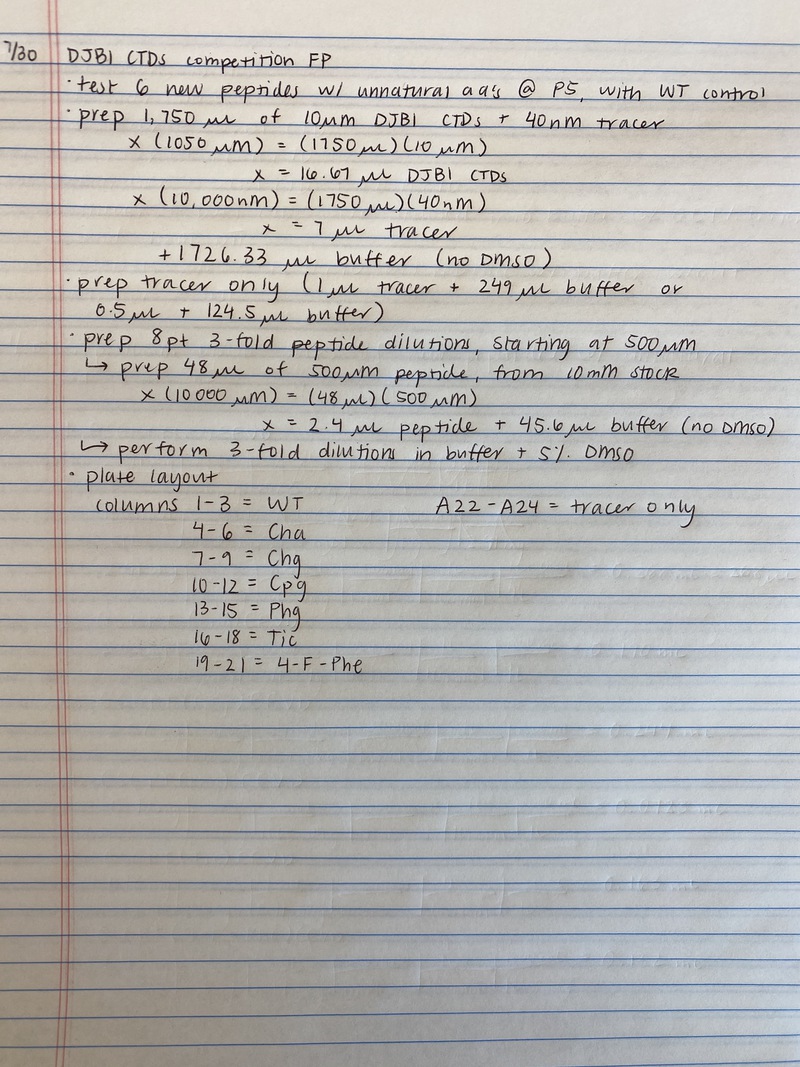 7/30 DJB1 CTDs competition FP
· test 6 new peptides w/ unnatural aa's @ P5, with WT control
· prep 1,750 μl of 10μm DJB1 CTDs + 40nm tracer
x (1050 μM) = (1750 μl)(10 μM)
x = 16.67 μl DJB1 CTDs
x (10,000nM) = (1750 μl)(40nM)
x = 7 μl tracer
+1726.33 μl buffer (no DMSO)
· prep tracer only (1 μl tracer + 249 μl buffer or
0.5 μl + 124.5 μl buffer)
· prep 8pt 3-fold peptide dilutions, starting at 500 μM
↳ prep 48 μl of 500 μm peptide, from 10mM stock
x (10000 μM) = (48 μl)(500 μM)
x = 2.4 μl peptide + 45.6 μl buffer (no DMSO)
↳ perform 3-fold dilutions in buffer + 5% DMSO
· plate layout
columns 1-3 = WT A22-A24 = tracer only
4-6 = Cha
7-9 = Chg
10-12 = Cpg
13-15 = Phg
16-18 = Tic
19-21 = 4-F-Phe